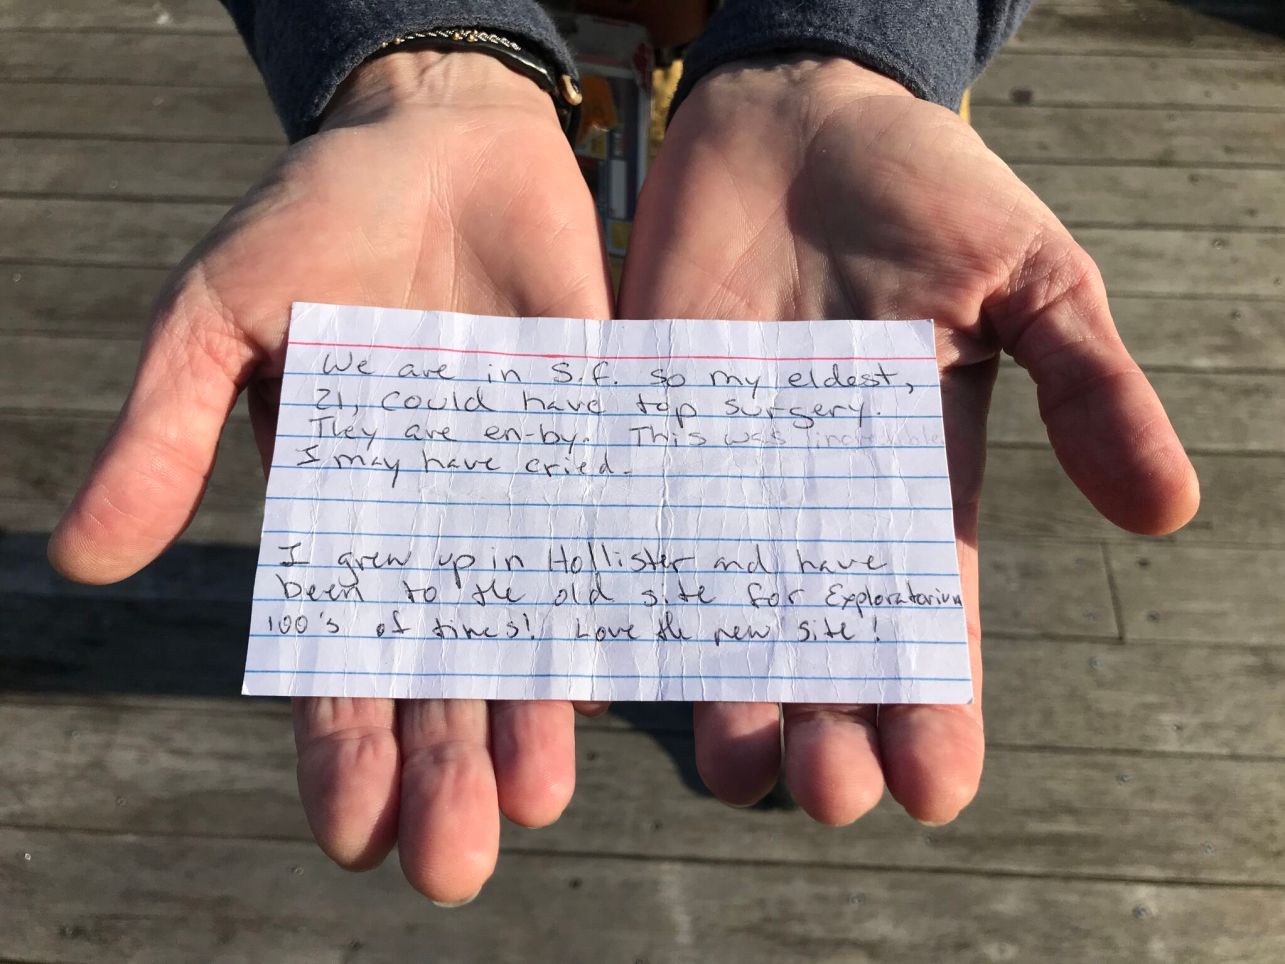 We are in S.F. so my eldest,
21, could have top surgery.
They are en-by. This was incredible
I may have cried.
I grew up in Hollister and have
been to the old site for Exploratorium
100's of times! Love the new site!